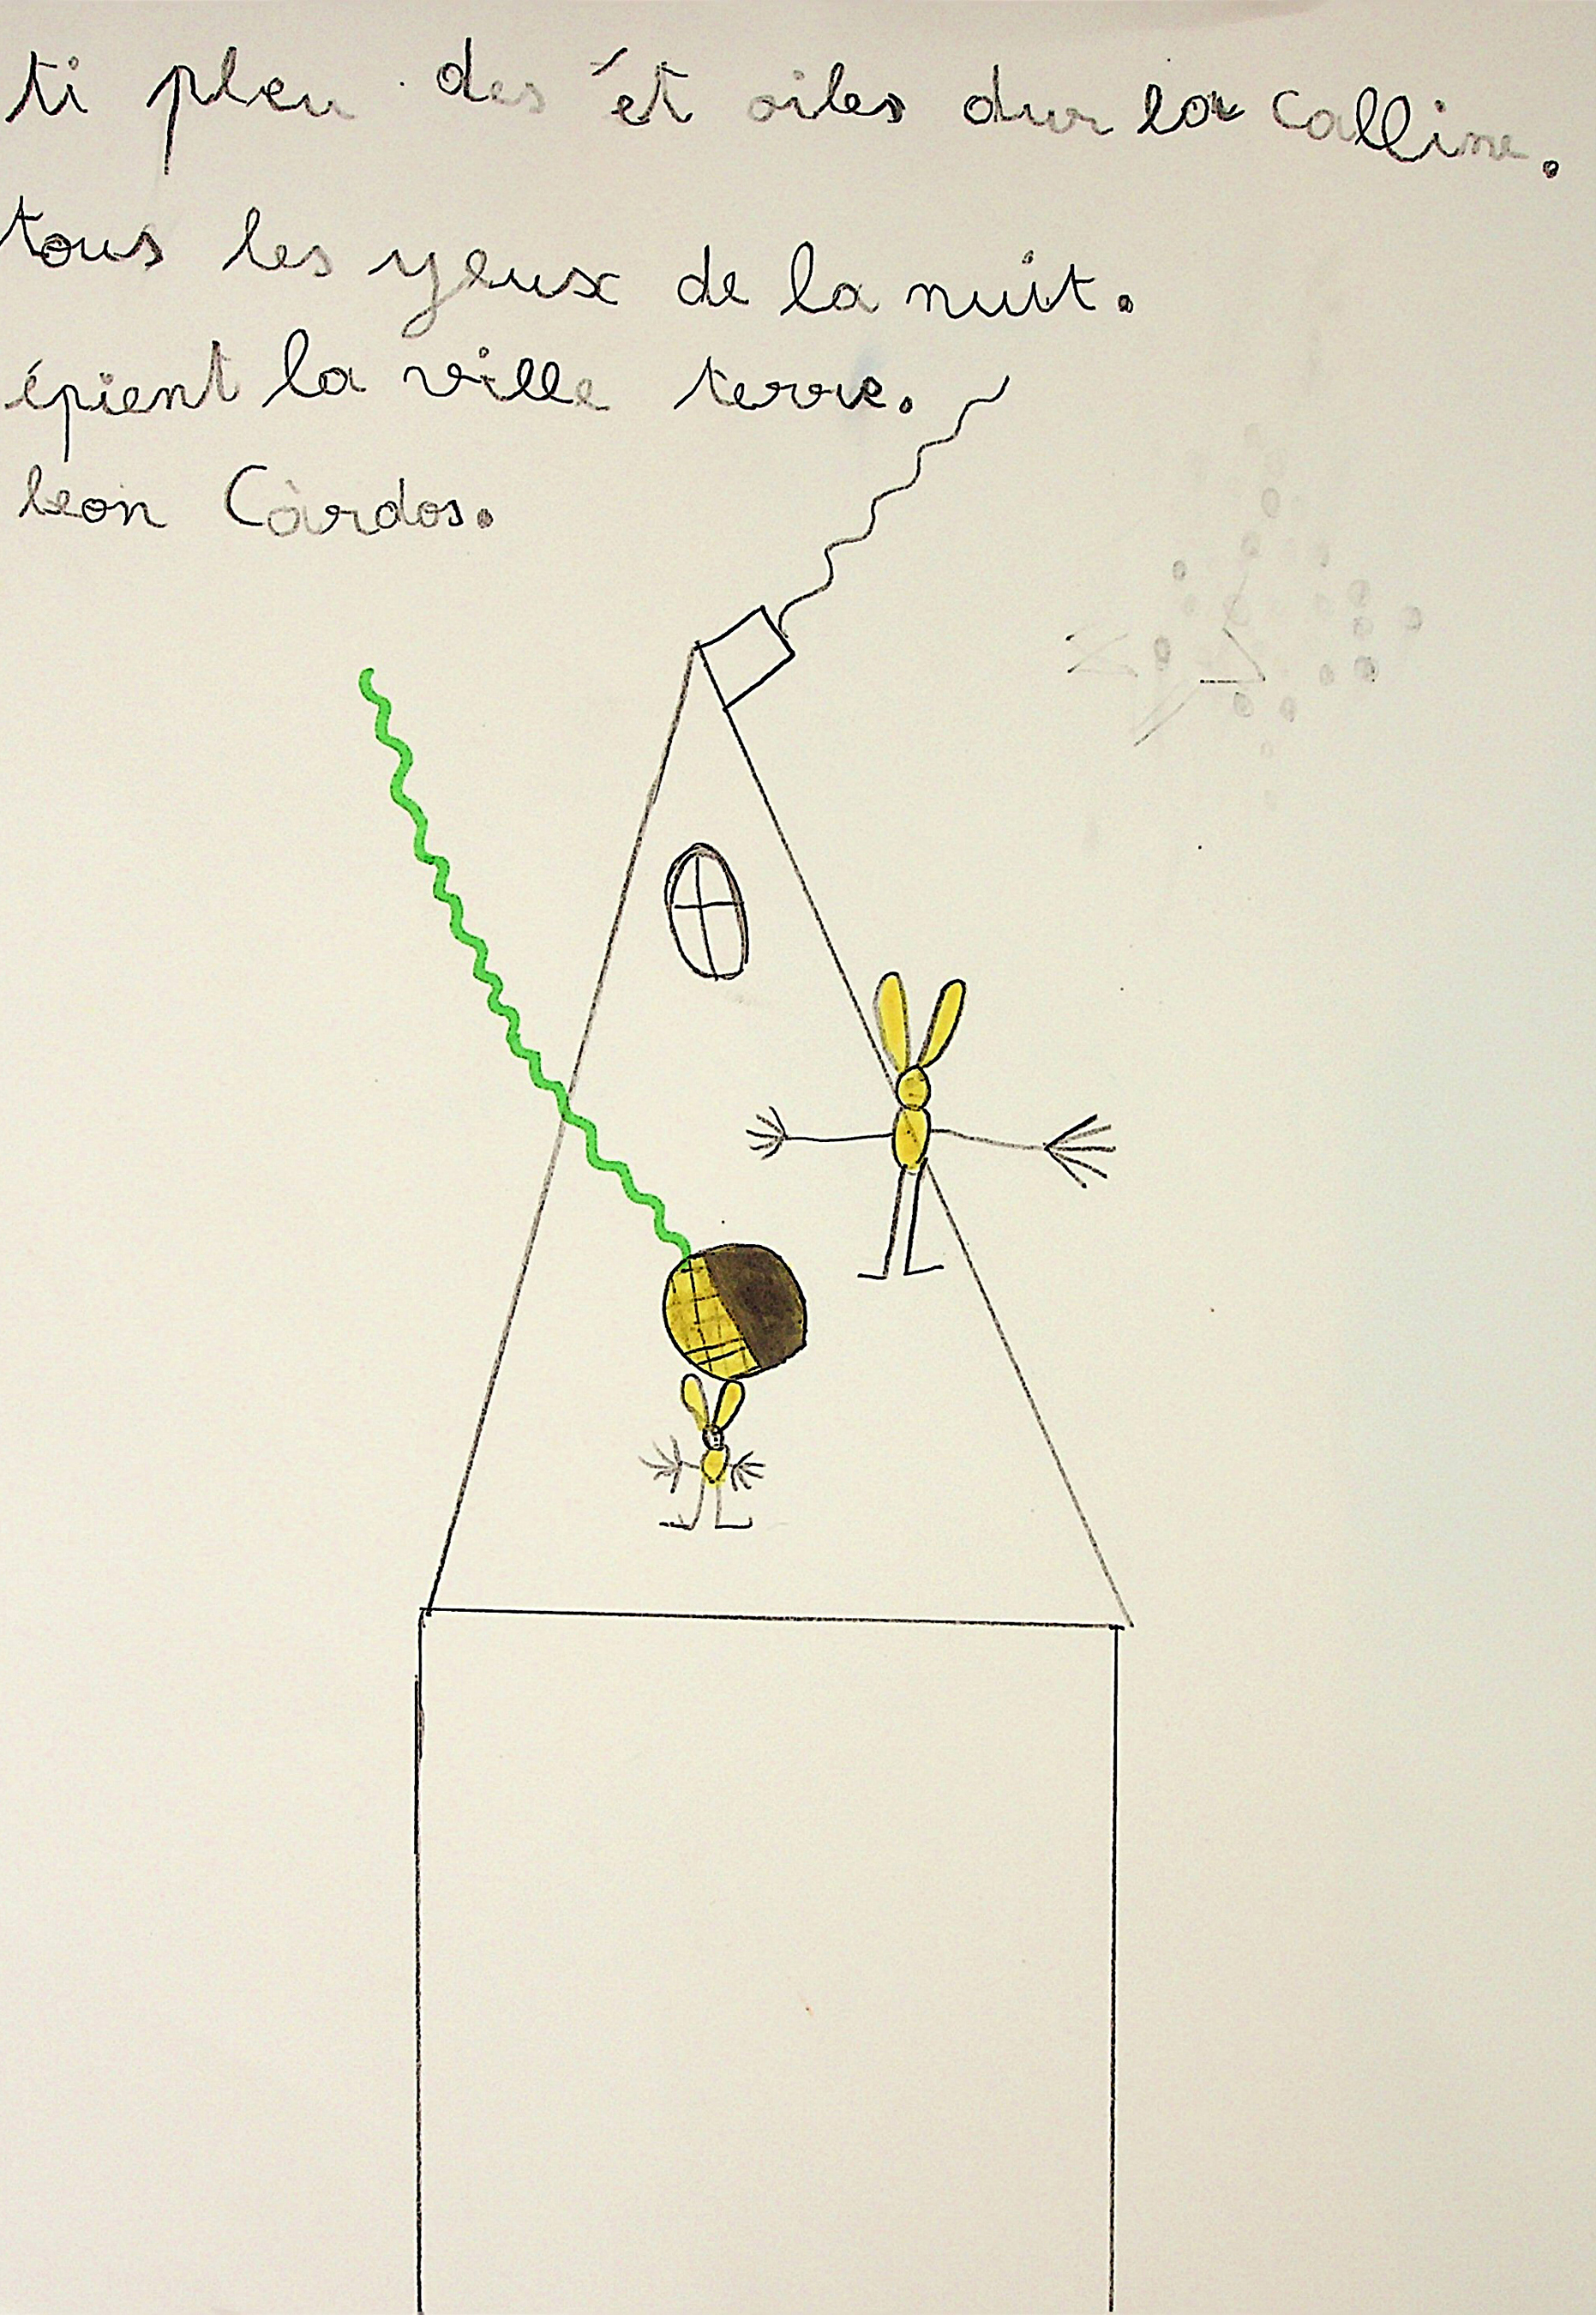 ti pleu des ét oiles dur la colline.
tous les yeux de la nuit.
épient la ville terre.
leon Càrdos.